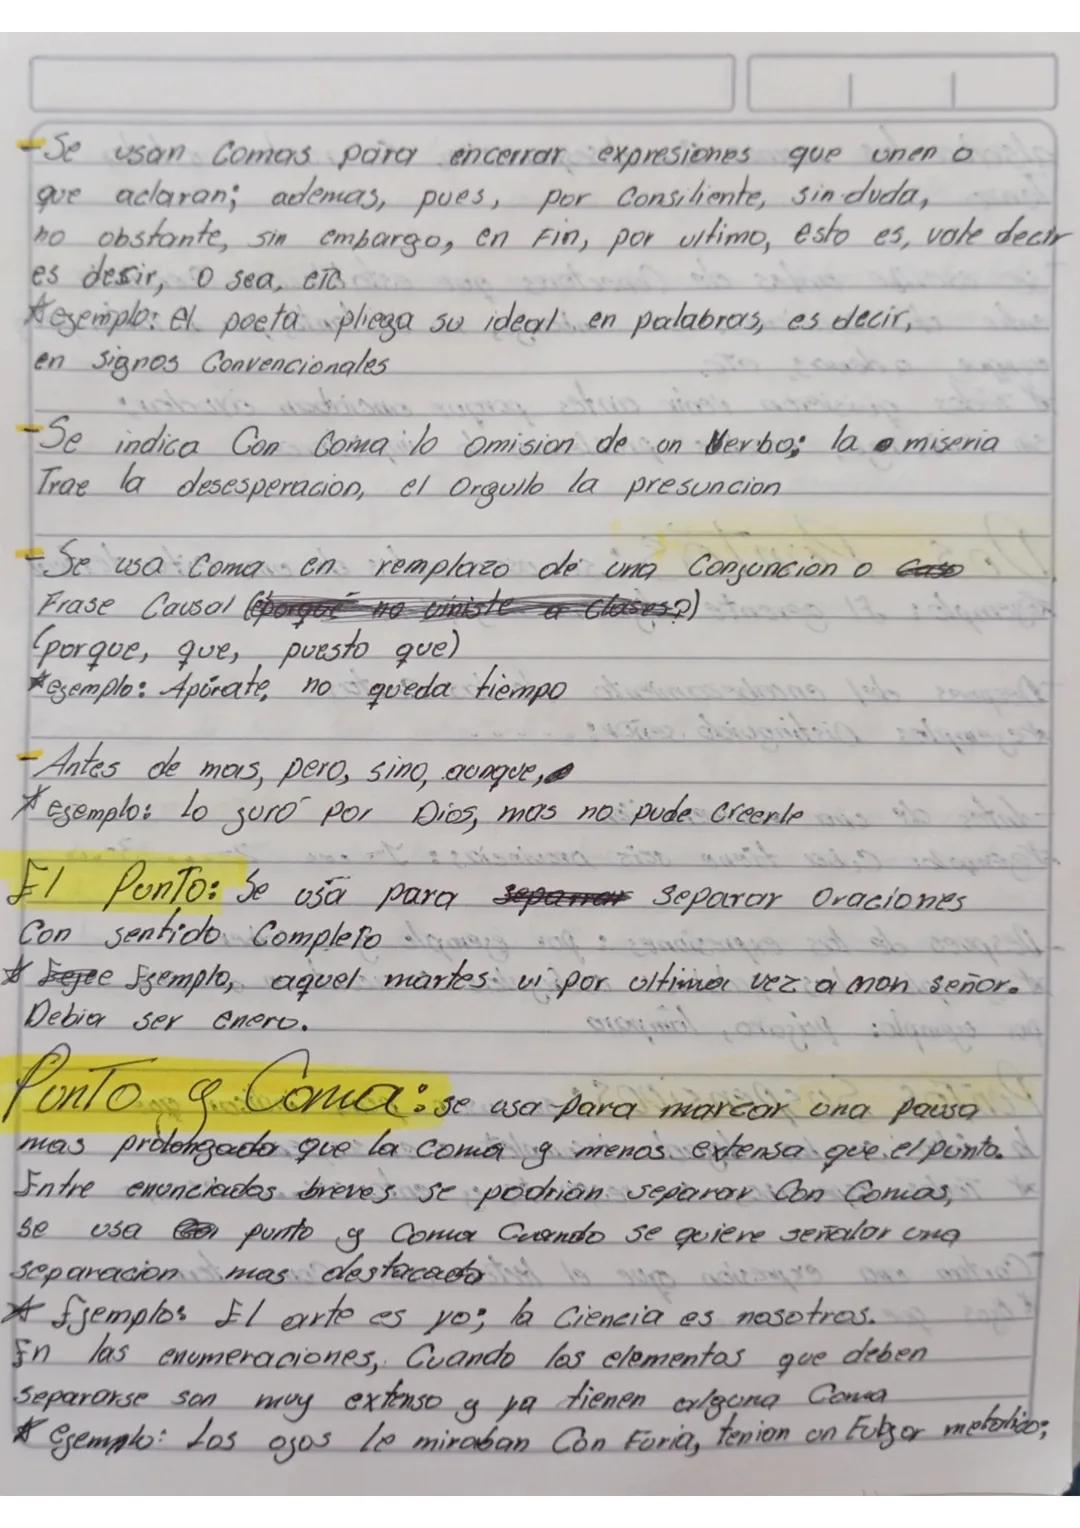 - Se usan Comas para encerrar expresiones que unen o
que aclaran; ademas, pues, por Consiliente, sin duda,
no obstante, sin embargo, en Fin, por ultimo, esto es, vale decir
es desir, o sea, etc
* egemplo: el poeta pliega su ideal en palabras, es decir,
en signos Convencionales
- Se indica Con Coma lo omision de un Verbo; la miseria
Trae la desesperacion, el Orgullo la presuncion
- Se usa Coma en remplazo de una Conjuncion o Caso
Frase Causal (porque no viniste a clases?)
(porque, que, puesto que)
* egemplo: Apúrate, no queda tiempo
- Antes de mas, pero, sino, aunque,
* egemplo: Lo juró por Dios, mas no pude Creerle
El Punto: Se usa para separar Separar Oraciones
Con sentido Completo
* Egemplo, aquel martes vi por ultima vez a mon señor.
Debia ser enero.
Punto y Coma: se usa para marcar una pausa
mas prolongada que la coma y menos extensa que el punto.
Entre enunciados breves se podrian separar Con Comas,
se usa punto y Coma Cuando se quiere señalar una
separacion mas destacada
* Ejemplo: El arte es yo; la Ciencia es nosotros.
En las enumeraciones, Cuando los elementos que deben
separarse son muy extenso y ya tienen alguna Coma
* Egemplo: Los ojos le miraban Con Furia, tenian un Fulgor metalico;